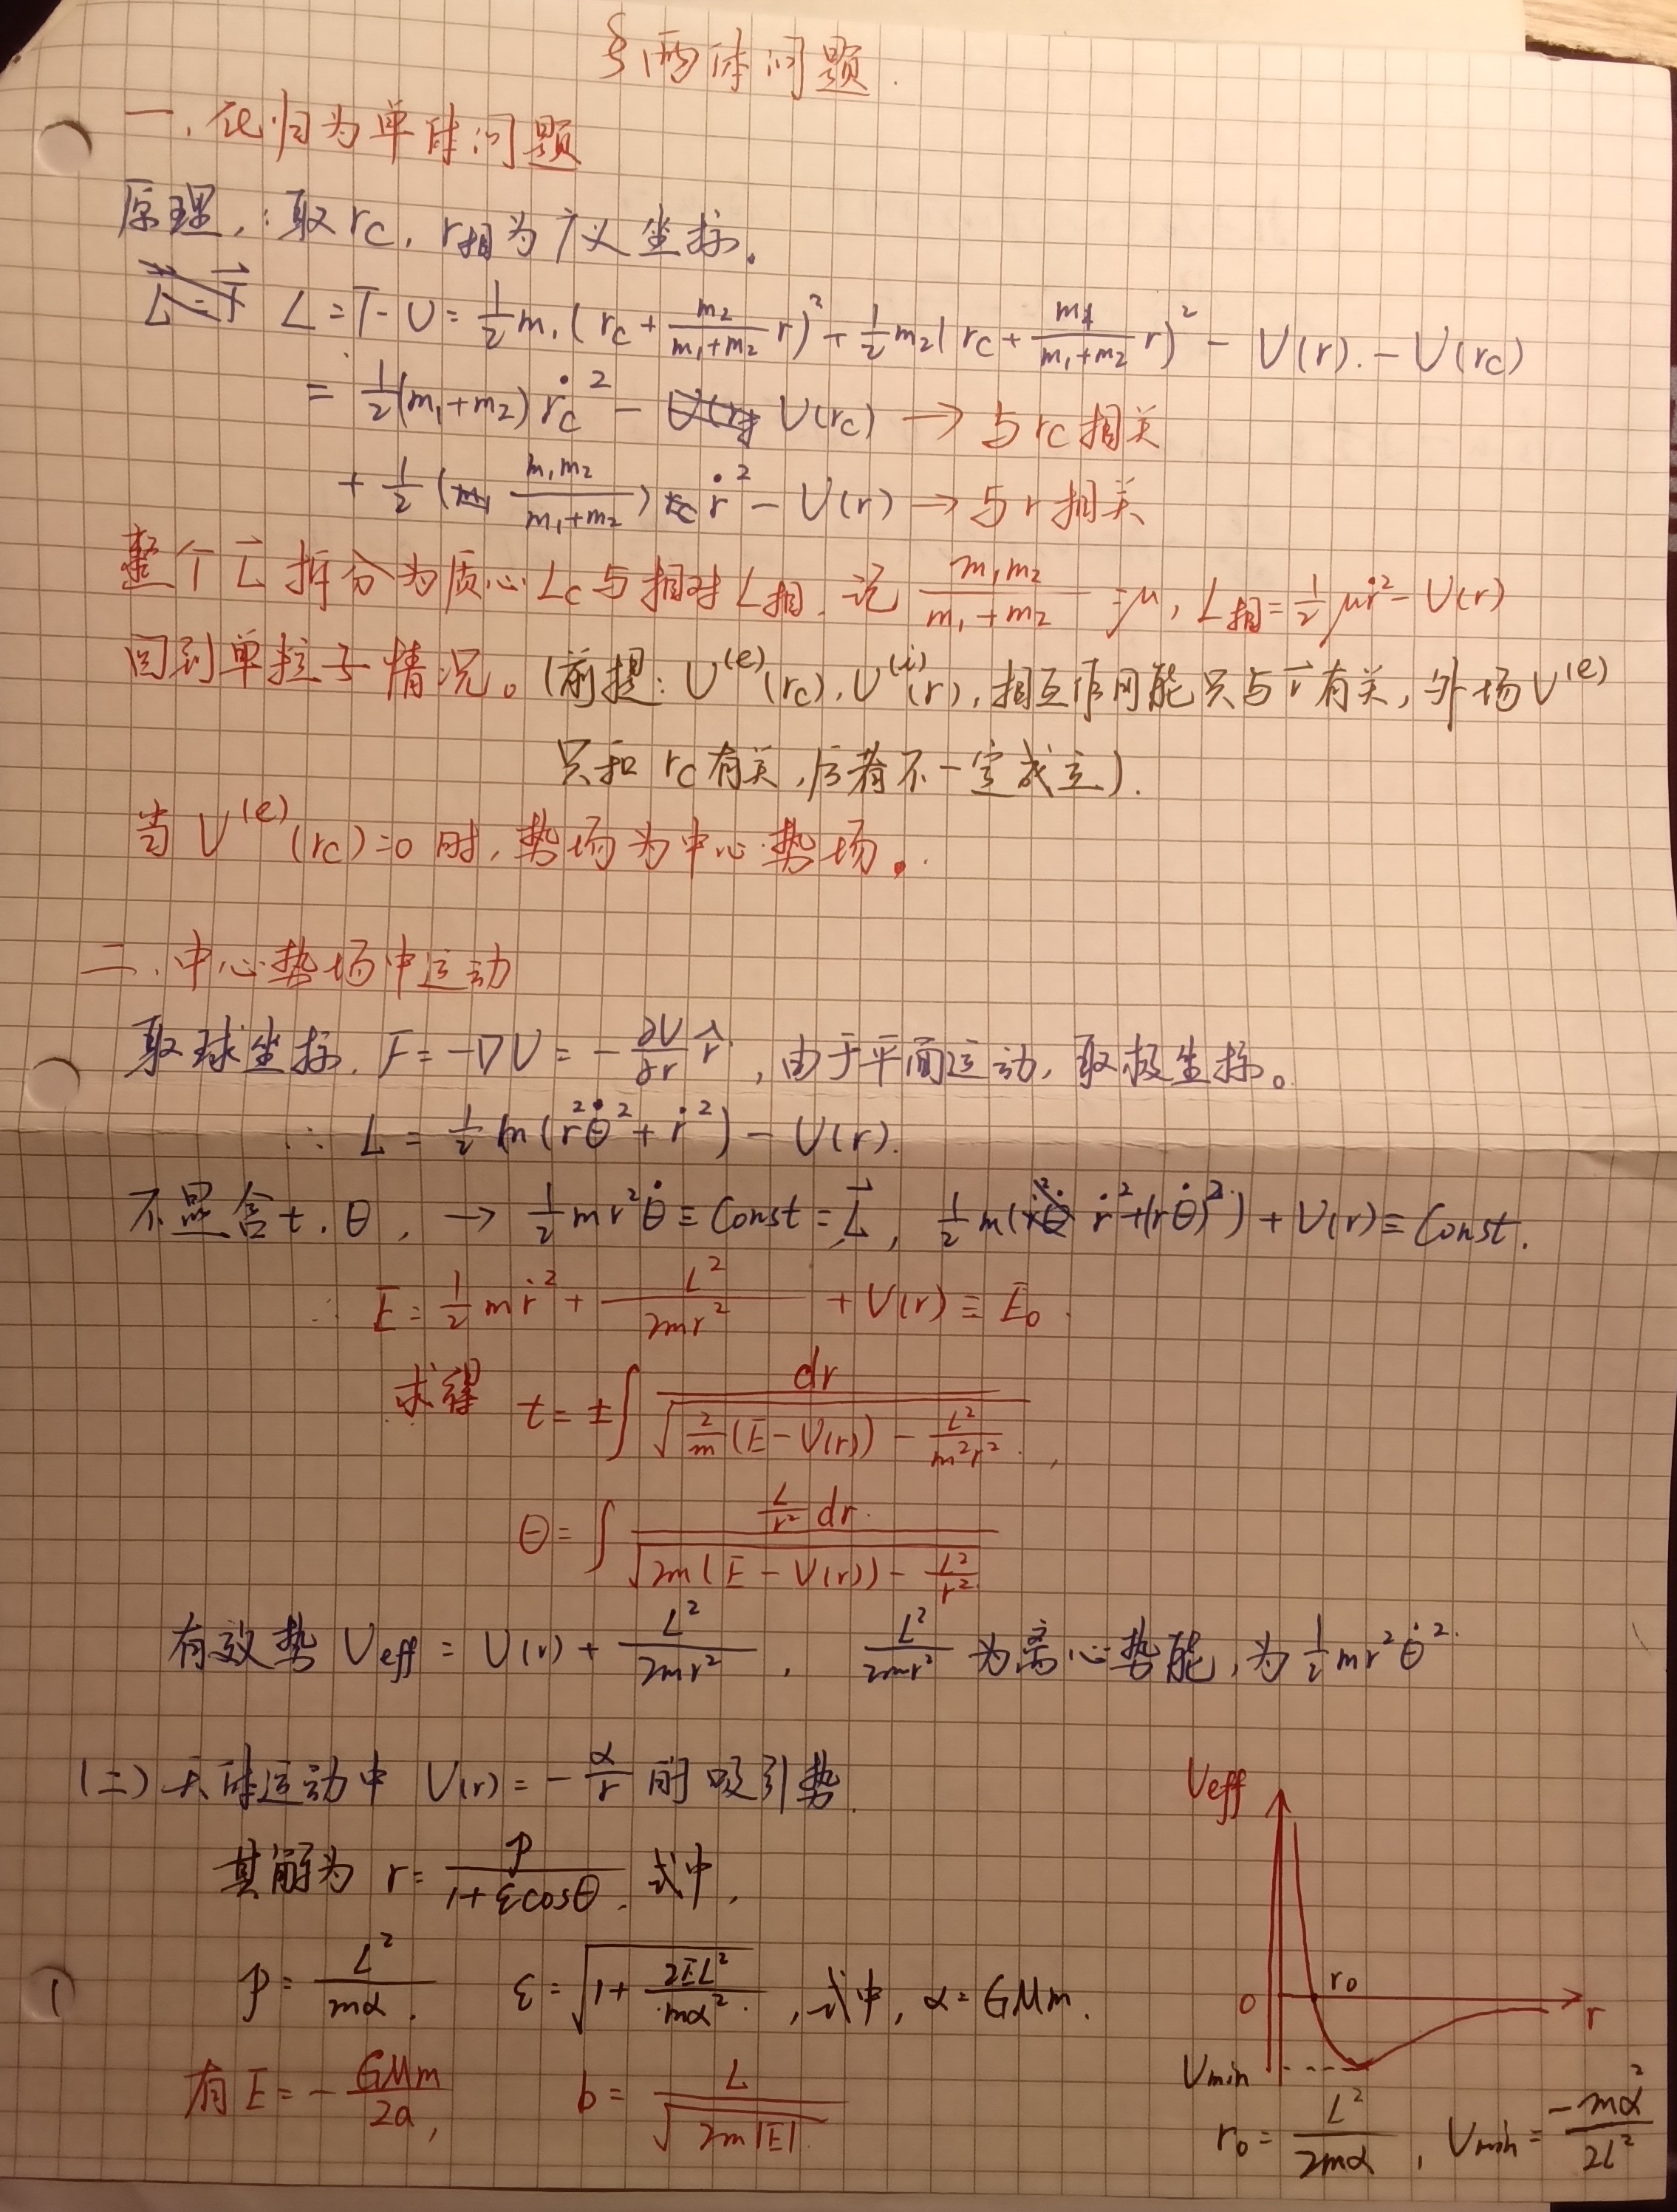 §两体问题.
一.化归为单体问题
原理:取rc, r相为广义坐标。
L = T-U = 1/2 m₁(rc + m₂/(m₁+m₂) r)² + 1/2 m₂(rc + m₁/(m₁+m₂) r)² - U(r). - U(rc)
= 1/2(m₁+m₂)ṙc² - U(rc) → 与rc相关
+ 1/2 (m₁m₂/(m₁+m₂)) ṙ² - U(r) → 与r相关
整个L拆分为质心Lc与相对L相. 记 m₁m₂/(m₁+m₂) = μ, L相=1/2 μṙ² - U(r)
回到单粒子情况。(前提: U⁽ᵉ⁾(rc), U⁽ⁱ⁾(r), 相互作用能只与r⃗有关, 外场U⁽ᵉ⁾
只和 rc有关,后者不一定成立).
当U⁽ᵉ⁾(rc)=0时,势场为中心势场。
二.中心势场中运动
取球坐标. F = -∇U = -∂U/∂r r̂, 由于平面运动, 取极坐标。
∴ L = 1/2 m(r²θ̇² + ṙ²) - U(r).
不显含t, θ, → 1/2 mr²θ̇ ≡ Const = L⃗, 1/2 m(ṙ²+(rθ̇)²) + U(r) ≡ Const.
∴ E = 1/2 mṙ² + L²/2mr² + U(r) ≡ E₀.
求得 t = ±∫ dr / √(2/m (E-U(r)) - L²/m²r²),
θ = ∫ L/r² dr / √(2m(E-U(r)) - L²/r²)
有效势 Ueff = U(r) + L²/2mr², L²/2mr² 为离心势能,为 1/2 mr²θ̇².
(二)天体运动中 U(r) = -α/r 的吸引势.
其解为 r = p/(1+εcosθ). 式中,
p = L²/mα. ε = √(1 + 2EL²/mα²), 式中, α = GMm.
有E = -GMm/2a, b = L/√(2m|E|)
Ueff
r₀
0
r
Umin
r₀ = L²/2mα, Umin = -mα²/2L²
①